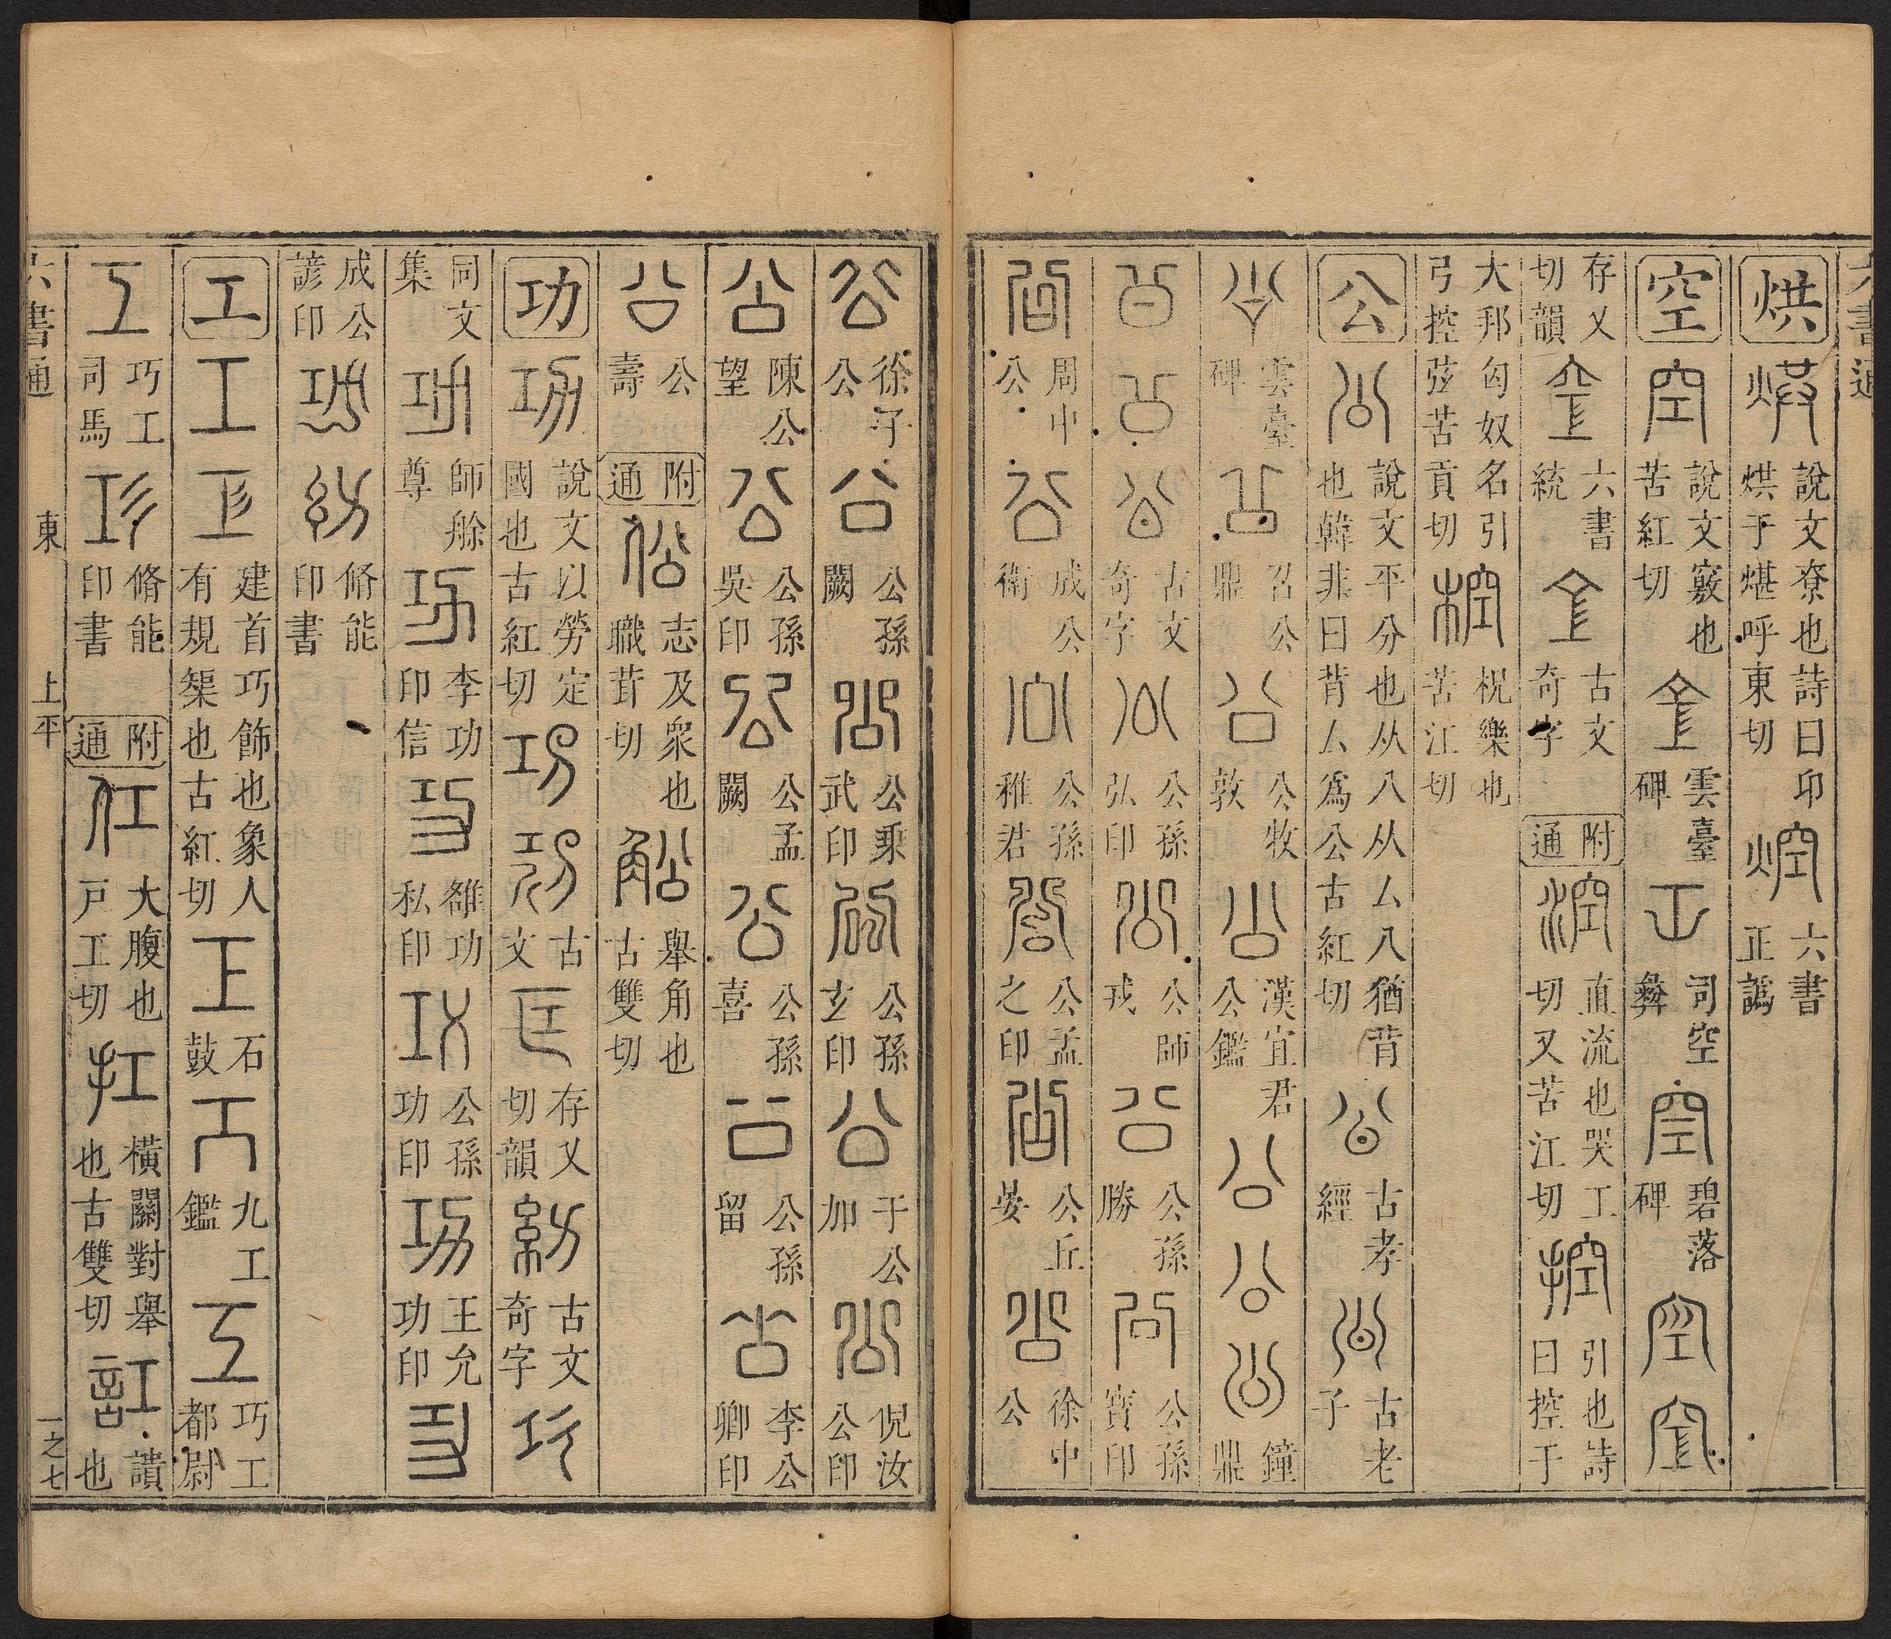 六書通
烘 說文尞也詩曰卬烘于煁呼東切 六書正譌
空 說文竅也苦紅切 雲臺碑 司空彝 碧落碑
存乂切韻 六書統 古文奇字 附通 涳 直流也哭工切又苦江切 控 引也詩曰控于
大邦匈奴名引弓控弦苦貢切 椌 柷樂也苦江切
公 說文平分也从八从厶八猶背也韓非曰背厶爲公古紅切 古孝經 古老子
雲臺碑 召公鼎 公牧敦 漢宜君公鑑 鐘鼎
古文奇字 公孫弘印 公師戎 公孫勝 公孫寶印
周中公 成公衛 公孫稚君 公孟之印 公丘晏 徐中公
徐子公 公孫闕 公乘武印 公孫玄印 于公加 倪汝公印
陳公望 公孫吳印 公孟闕 公孫喜 公孫留 李公卿印
公壽 附通 志及衆也職茸切 舉角也古雙切
功 說文以勞定國也古紅切 古文 存乂切韻 古文奇字
同文集 師艅尊 李功印信 雒功私印 公孫功印 王允功印
成公諺印 脩能印書
工 建首巧飾也象人有規榘也古紅切 石鼓 九工鑑 巧工都尉
巧工司馬 脩能印書 附通 仜 大腹也戶工切 扛 橫關對舉也古雙切 訌 讃也
六書通 東 上平 一之七